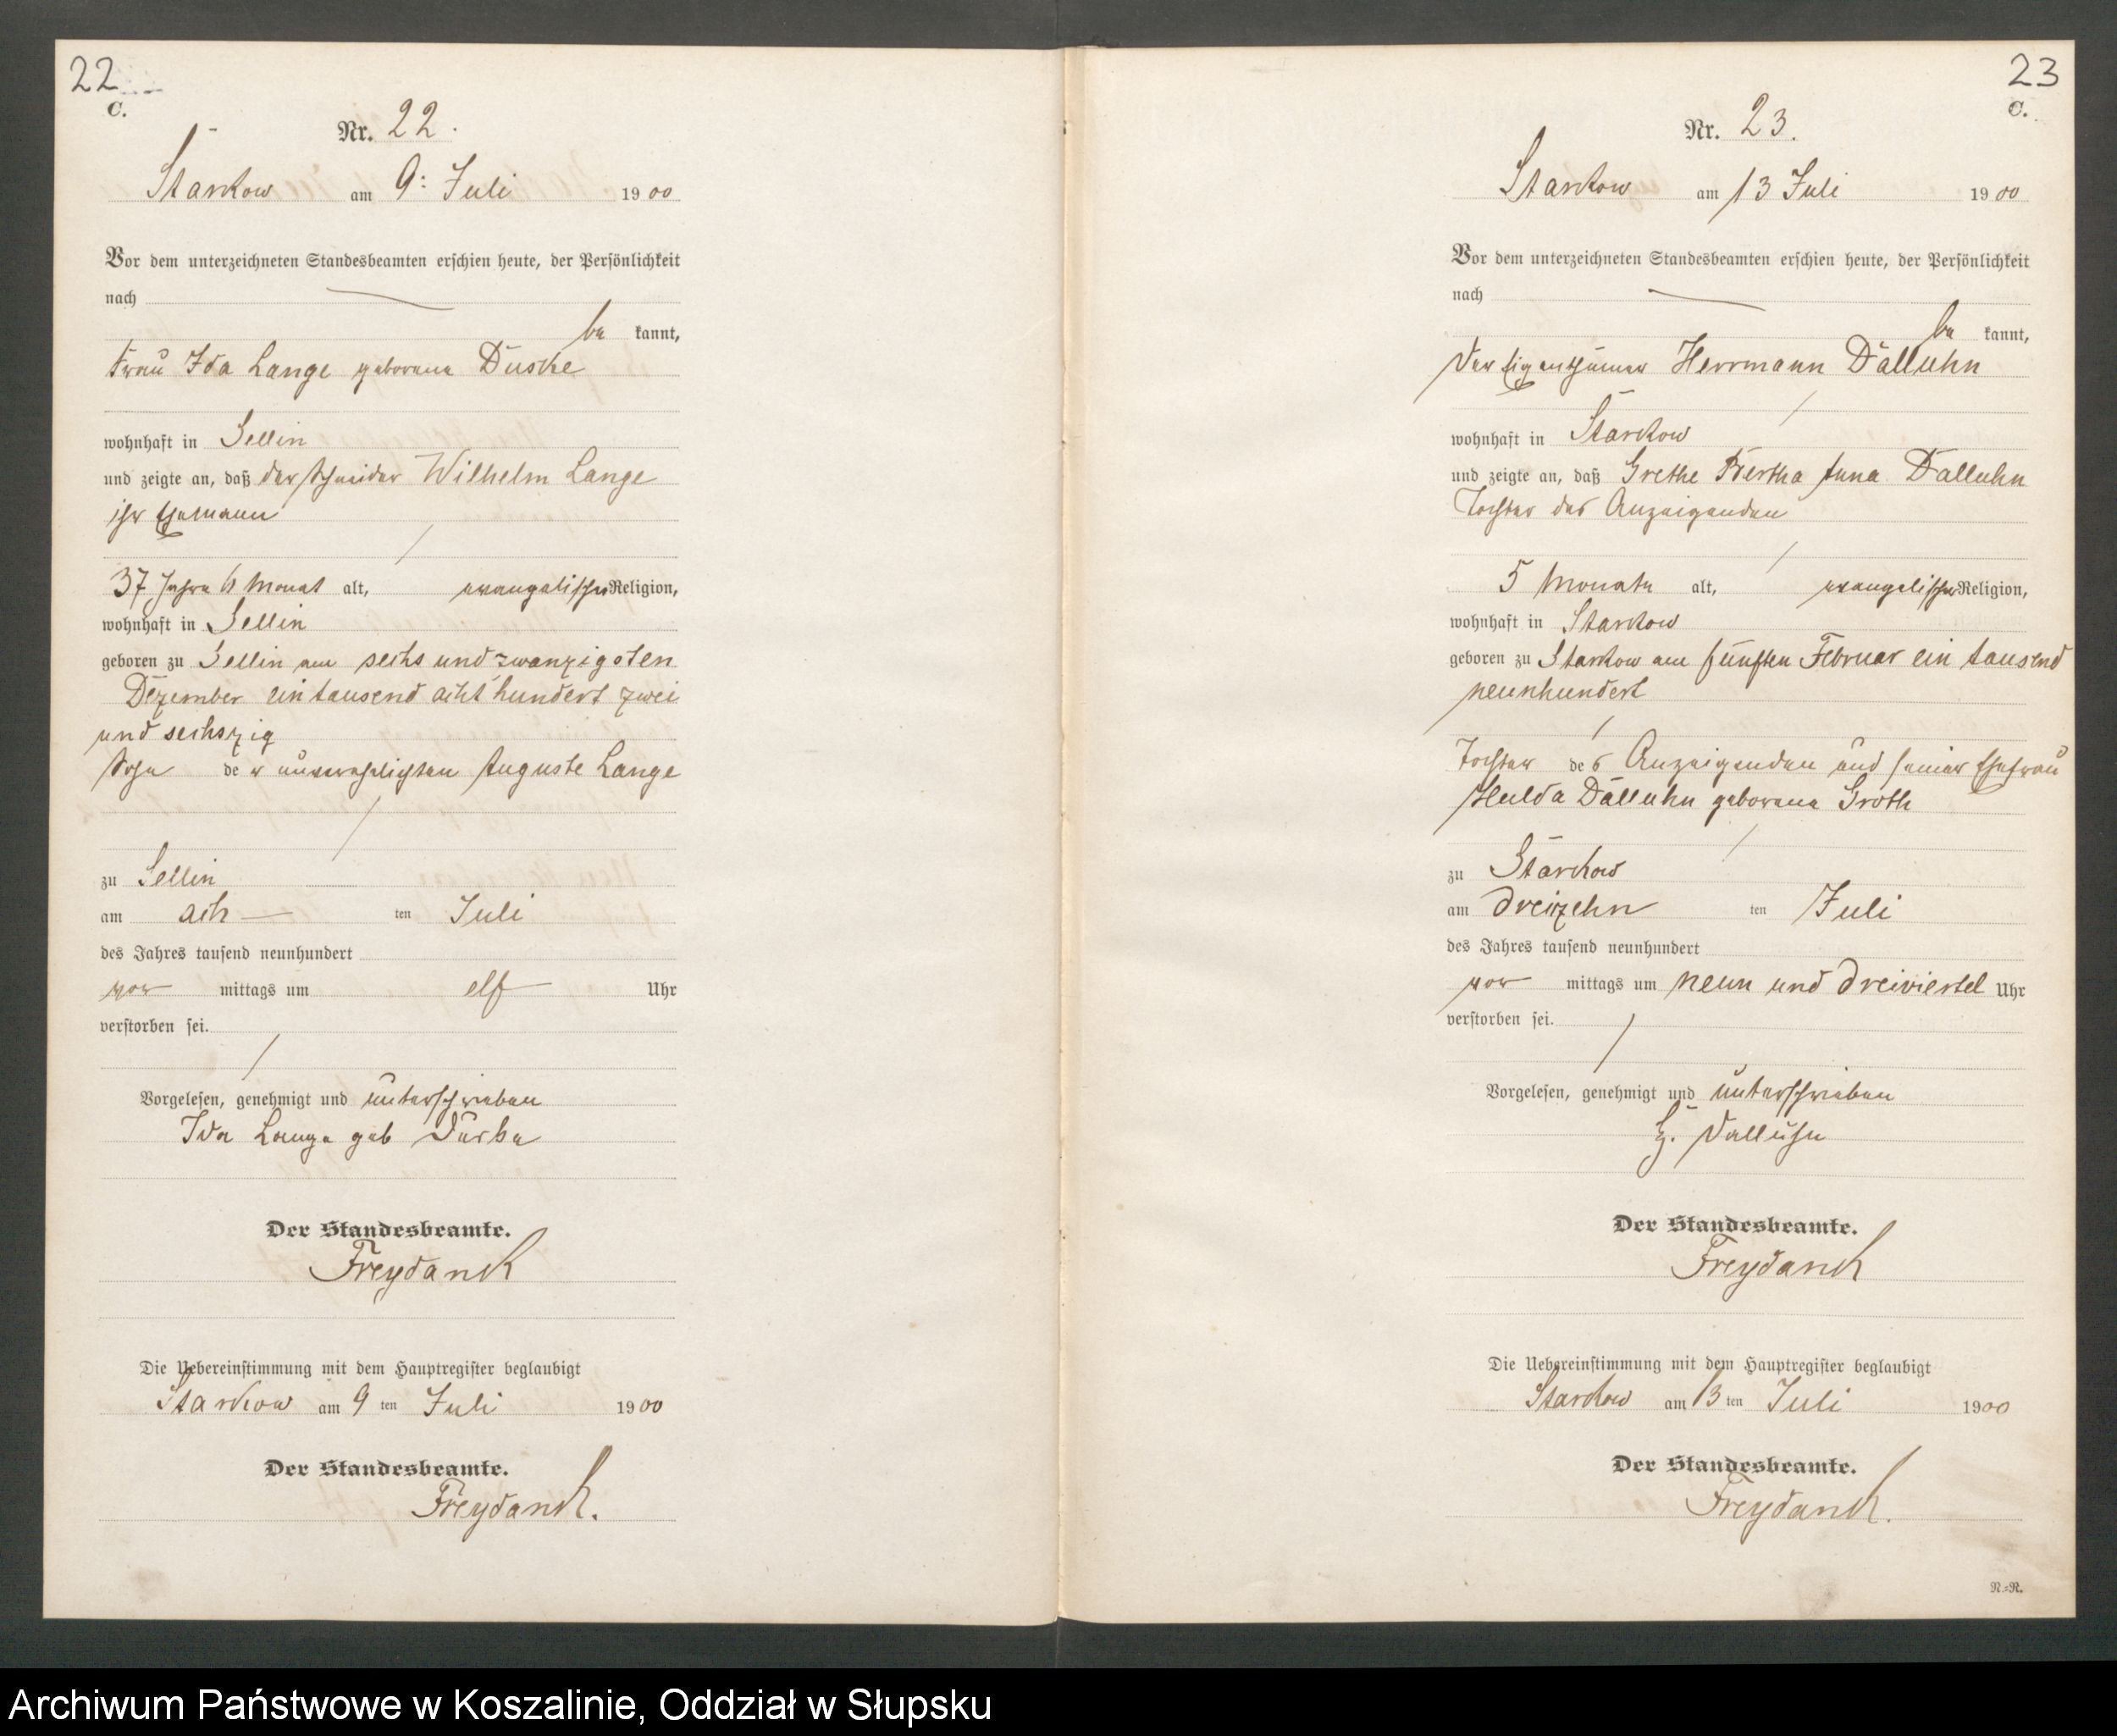 22
C.
Nr. 22.
Starkow am 9: Juli 1900
Vor dem unterzeichneten Standesbeamten erschien heute, der Persönlichkeit
nach
be kannt,
Frau Ida Lange geborene
wohnhaft in Sellin
und zeigte an, daß der Schneider Wilhelm Lange
ihr Ehemann
37 Jahre 6 Monat alt, evangelischer Religion,
wohnhaft in Sellin
geboren zu Sellin am sechs und zwanzigsten
Dezember ein tausend acht hundert zwei
und sechszig
Sohn der unverehelichten Auguste Lange
zu Sellin
am ach ten Juli
des Jahres tausend neunhundert
vor mittags um elf Uhr
verstorben sei.
Vorgelesen, genehmigt und unterschrieben
Ida Lange geb
Der Standesbeamte.
Freydank
Die Uebereinstimmung mit dem Hauptregister beglaubigt
Starkow am 9 ten Juli 1900
Der Standesbeamte.
Freydank.
23
C.
Nr. 23.
Starkow am 13 Juli 1900
Vor dem unterzeichneten Standesbeamten erschien heute, der Persönlichkeit
nach
be kannt,
Der Eigenthümer Herrmann Dalluhn
wohnhaft in Starkow
und zeigte an, daß Grethe Bertha Anna Dalluhn
Tochter des Anzeigenden
5 Monate alt, evangelischer Religion,
wohnhaft in Starkow
geboren zu Starkow am fünften Februar ein tausend
neunhundert
Tochter des Anzeigenden und seiner Ehefrau
Hulda Dalluhn geborene Groth
zu Starkow
am dreizehn ten Juli
des Jahres tausend neunhundert
vor mittags um neun und dreiviertel Uhr
verstorben sei.
Vorgelesen, genehmigt und unterschrieben
H. Dalluhn
Der Standesbeamte.
Freydank
Die Uebereinstimmung mit dem Hauptregister beglaubigt
Starkow am 13 ten Juli 1900
Der Standesbeamte.
Freydank.
N.=N.
Archiwum Państwowe w Koszalinie, Oddział w Słupsku